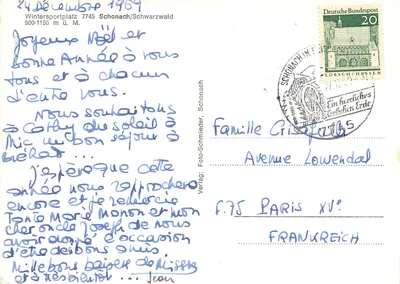 24 Décembre 1969
Wintersportplatz 7745 Schonach/Schwarzwald
900-1150 m ü. M.
Joyeux Noël et
Bonne Année à vous
tous et à chacun
d'entre vous.
Nous souhaitons
à Cathy du soleil à
Mic un bon séjour à
J'espère que cette
année nous rapprochera
encore et je remercie
Tante Marie Manon et mon
cher oncle Joseph de nous
avoir donné l'occasion
d'être de bons amis.
Mille bons baisers de Missy
et à très bientôt ... Jean
Verlag: Foto-Schmieder, Schonach
Deutsche Bundespost
20
LORSCH/HESSEN
SCHONACH IM
Ein herrliches
Fleckchen Erde
Famille
Avenue Lowendal
F.75 PARIS XVe
FRANKREICH